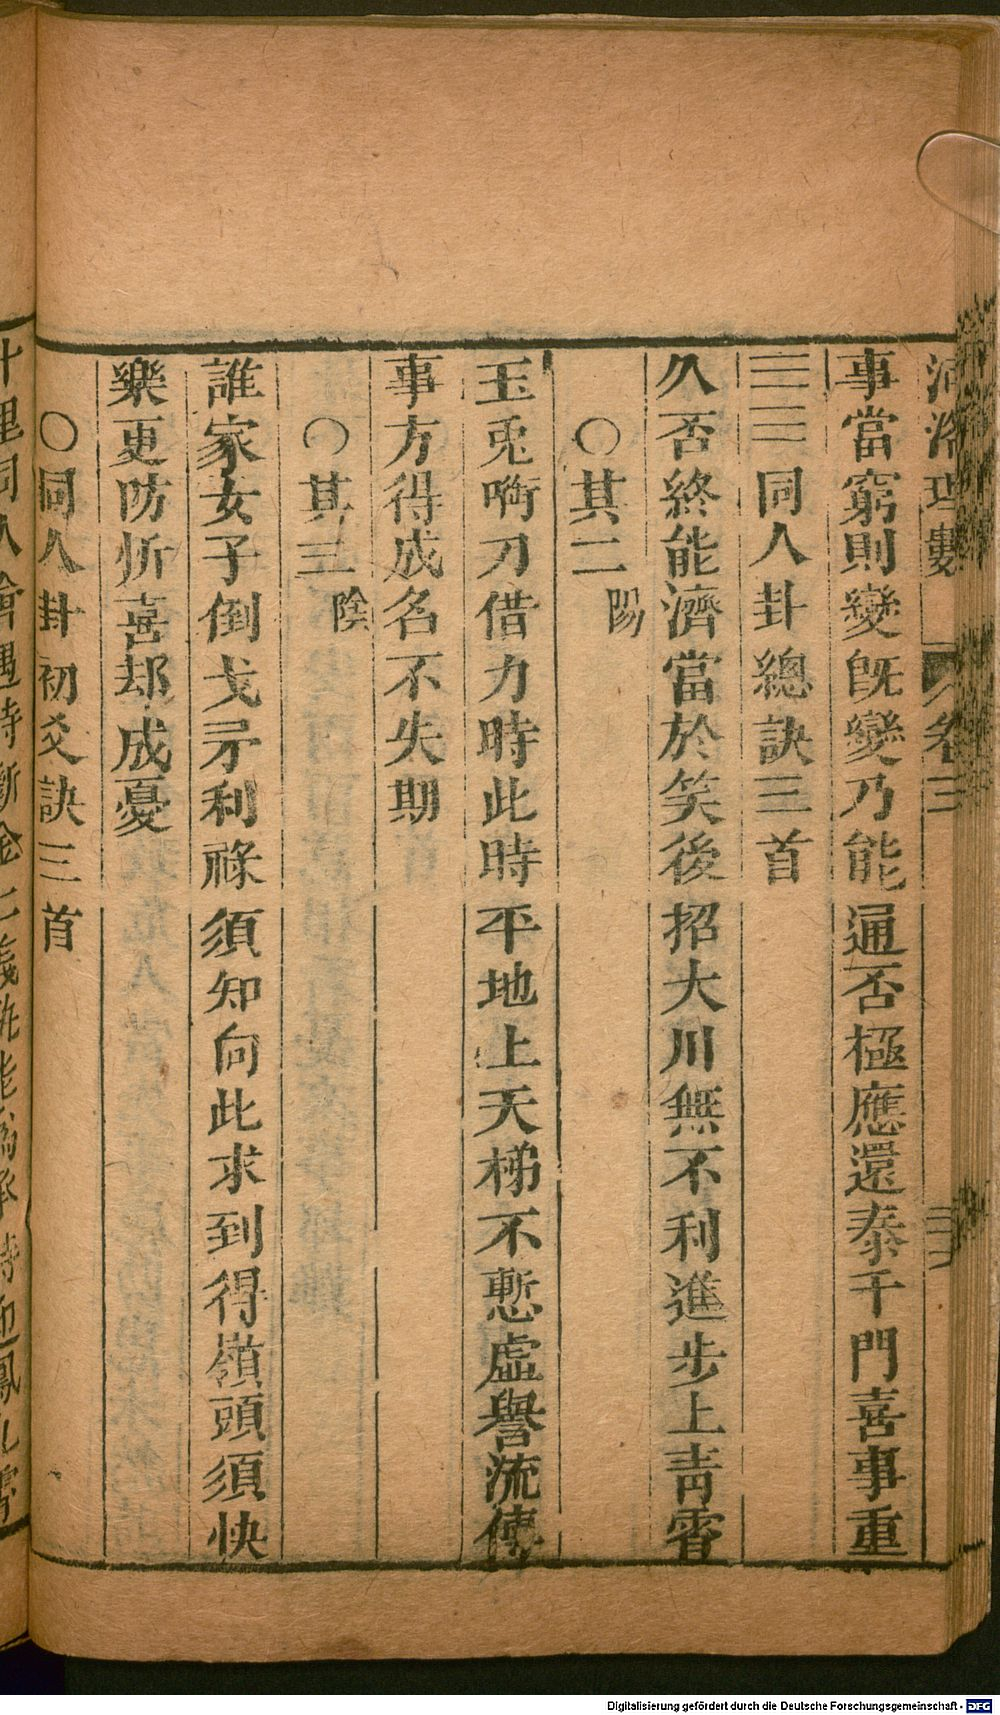 河洛理數 卷三
事當窮則變旣變乃能通否極應還泰千門喜事重
☰☲同人卦總訣三首
久否終能濟當於笑後招大川無不利進步上青霄
○其二陽
玉兎啣刀借力時此時平地上天梯不慙虛譽流傳
事方得成名不失期
○其三陰
誰家女子倒戈矛利祿須知向此求到得嶺頭須快
樂更防忻喜却成憂
○同人卦初爻訣三首
十里同人會遇時斷金
Digitalisierung gefördert durch die Deutsche Forschungsgemeinschaft - DFG